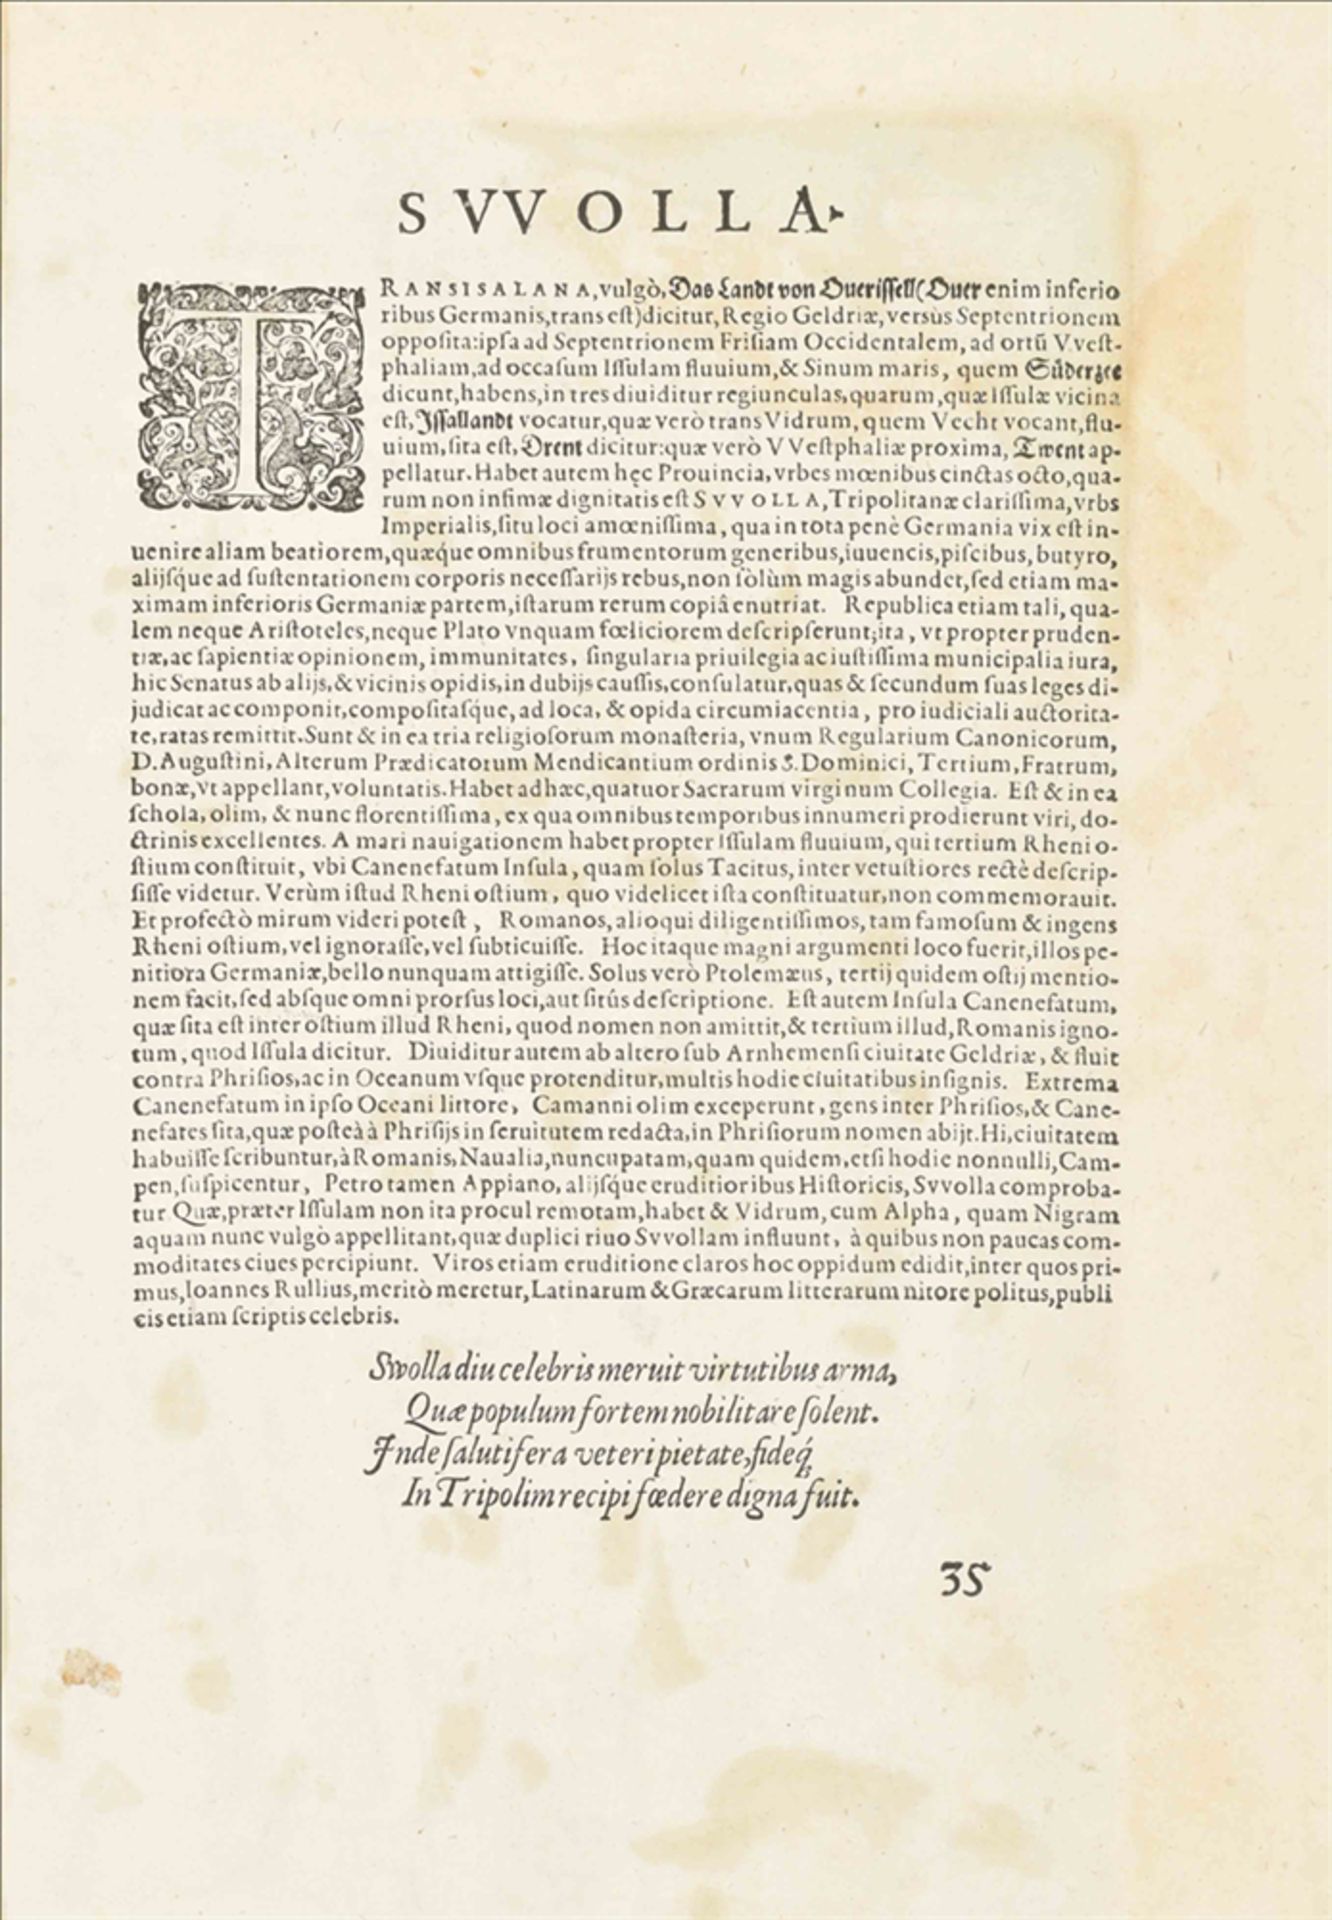 SVVOLLA.
TRANSISALANA, vulgò, Das Landt von Ouerissell (Ouer enim inferio
ribus Germanis, trans est) dicitur, Regio Geldriæ, versùs Septentrionem
opposita: ipsa ad Septentrionem Frisiam Occidentalem, ad ortũ VVest-
phaliam, ad occasum Issulam fluuium, & Sinum maris, quem Süderzee
dicunt, habens, in tres diuiditur regiunculas, quarum, quæ Issulæ vicina
est, Issallandt vocatur, quæ verò trans Vidrum, quem Vecht vocant, flu-
uium, sita est, Drent dicitur: quæ verò VVestphaliæ proxima, Twent ap-
pellatur. Habet autem hęc Prouincia, vrbes mœnibus cinctas octo, qua-
rum non infimæ dignitatis est SVVOLLA, Tripolitanæ clarissima, vrbs
Imperialis, situ loci amœnissima, qua in tota penè Germania vix est in-
uenire aliam beatiorem, quæq́ue omnibus frumentorum generibus, iuuencis, piscibus, butyro,
alijsq́ue ad sustentationem corporis necessarijs rebus, non sòlùm magis abundet, sed etiam ma-
ximam inferioris Germaniæ partem, istarum rerum copiâ enutriat. Republica etiam tali, qua-
lem neque Aristoteles, neque Plato vnquam fœliciorem descripserunt; ita, vt propter pruden-
tiæ, ac sapientiæ opinionem, immunitates, singularia priuilegia ac iustissima municipalia iura,
hic Senatus ab alijs, & vicinis opidis, in dubijs caussis, consulatur, quas & secundum suas leges di-
judicat ac componit, compositasq́ue, ad loca, & opida circumiacentia, pro iudiciali auctorita-
te, ratas remittit. Sunt & in ea tria religiosorum monasteria, vnum Regularium Canonicorum,
D. Augustini, Alterum Prædicatorum Mendicantium ordinis S. Dominici, Tertium, Fratrum,
bonæ, vt appellant, voluntatis. Habet ad hæc, quatuor Sacrarum virginum Collegia. Est & in ea
schola, olim, & nunc florentissima, ex qua omnibus temporibus innumeri prodierunt viri, do-
ctrinis excellentes. A mari nauigationem habet propter Issulam fluuium, qui tertium Rheni o-
stium constituit, vbi Canenefatum Insula, quam solus Tacitus, inter vetustiores rectè descrip-
sisse videtur. Verùm istud Rheni ostium, quo videlicet ista constituatur, non commemorauit.
Et profectò mirum videri potest, Romanos, alioqui diligentissimos, tam famosum & ingens
Rheni ostium, vel ignorasse, vel subticuisse. Hoc itaque magni argumenti loco fuerit, illos pe-
nitiora Germaniæ, bello nunquam attigisse. Solus verò Ptolemæus, tertij quidem ostij mentio-
nem facit, sed absque omni prorsus loci, aut sitûs descriptione. Est autem Insula Canenefatum,
quæ sita est inter ostium illud Rheni, quod nomen non amittit, & tertium illud, Romanis igno-
tum, quod Issula dicitur. Diuiditur autem ab altero sub Arnhemensi ciuitate Geldriæ, & fluit
contra Phrisios, ac in Oceanum vsque protenditur, multis hodie ciuitatibus insignis. Extrema
Canenefatum in ipso Oceani littore, Camanni olim exceperunt, gens inter Phrisios, & Cane-
nefates sita, quæ posteà à Phrisijs in seruitutem redacta, in Phrisiorum nomen abijt. Hi, ciuitatem
habuisse scribuntur, à Romanis, Naualia, nuncupatam, quam quidem, etsi hodie nonnulli, Cam-
pen, suspicentur, Petro tamen Appiano, alijsq́ue eruditioribus Historicis, Svvolla comproba-
tur Quæ, præter Issulam non ita procul remotam, habet & Vidrum, cum Alpha, quam Nigram
aquam nunc vulgò appellitant, quæ duplici riuo Svvollam influunt, à quibus non paucas com-
moditates ciues percipiunt. Viros etiam eruditione claros hoc oppidum edidit, inter quos pri-
mus, Ioannes Rullius, meritò meretur, Latinarum & Græcarum litterarum nitore politus, publi
cis etiam scriptis celebris.
Swolla diu celebris meruit virtutibus arma,
Quæ populum fortem nobilitare solent.
Inde salutifera veteri pietate, fideq́;
In Tripolim recipi fœdere digna fuit.
35